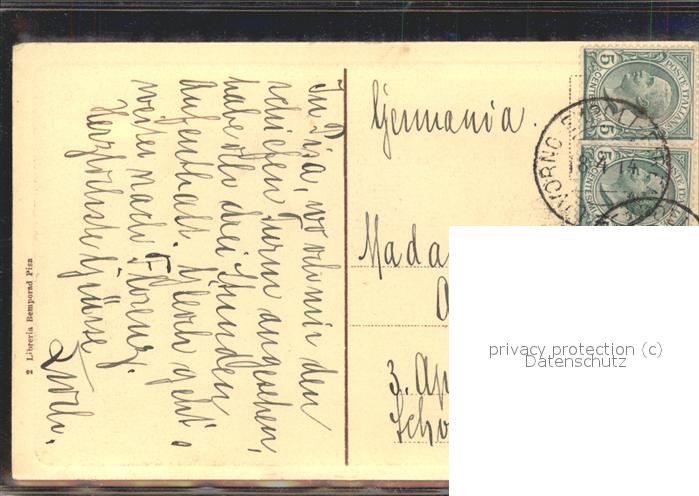 In Pisa, wo wir den
schiefen Turm angesehen,
habe ich drei Stunden
Aufenthalt. Gleich geht's
weiter nach Florenz.
Herzlichste Grüsse
2 Libreria Bemporad Pisa
Germania.
Mada
3. Ap
Scho
POSTE ITALIANE
CENTESIMI
5
5
POSTE ITALIANE
CENTESIMI
5
5
LIVORNO
14
privacy protection (c)
Datenschutz